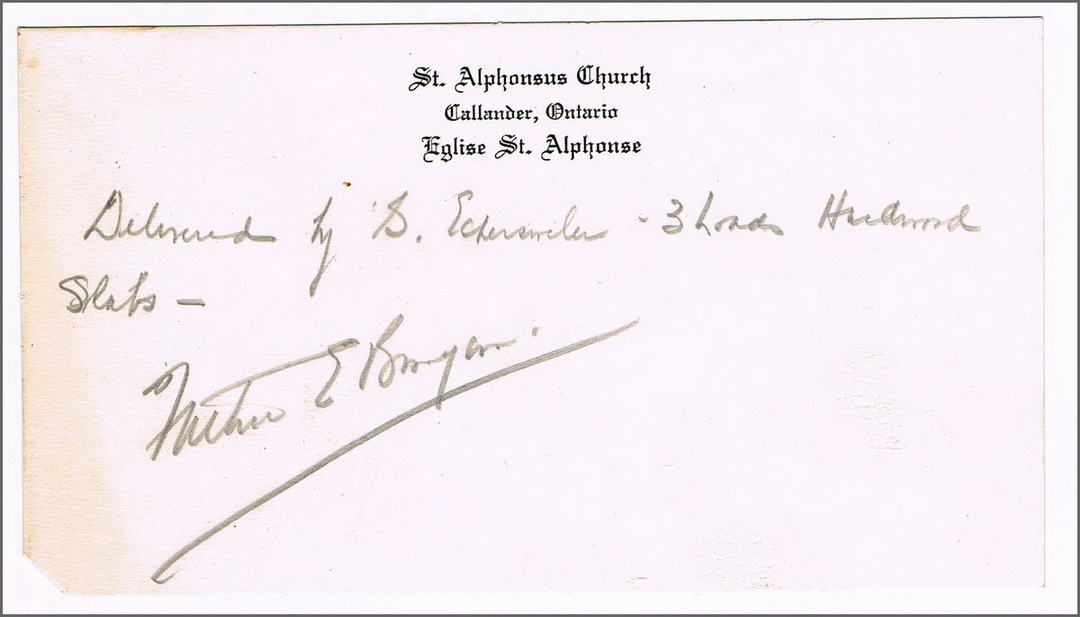 St. Alphonsus Church
Callander, Ontario
Eglise St. Alphonse
Delivered by B. - 3 Loads Hardwood
Slabs -
Father E